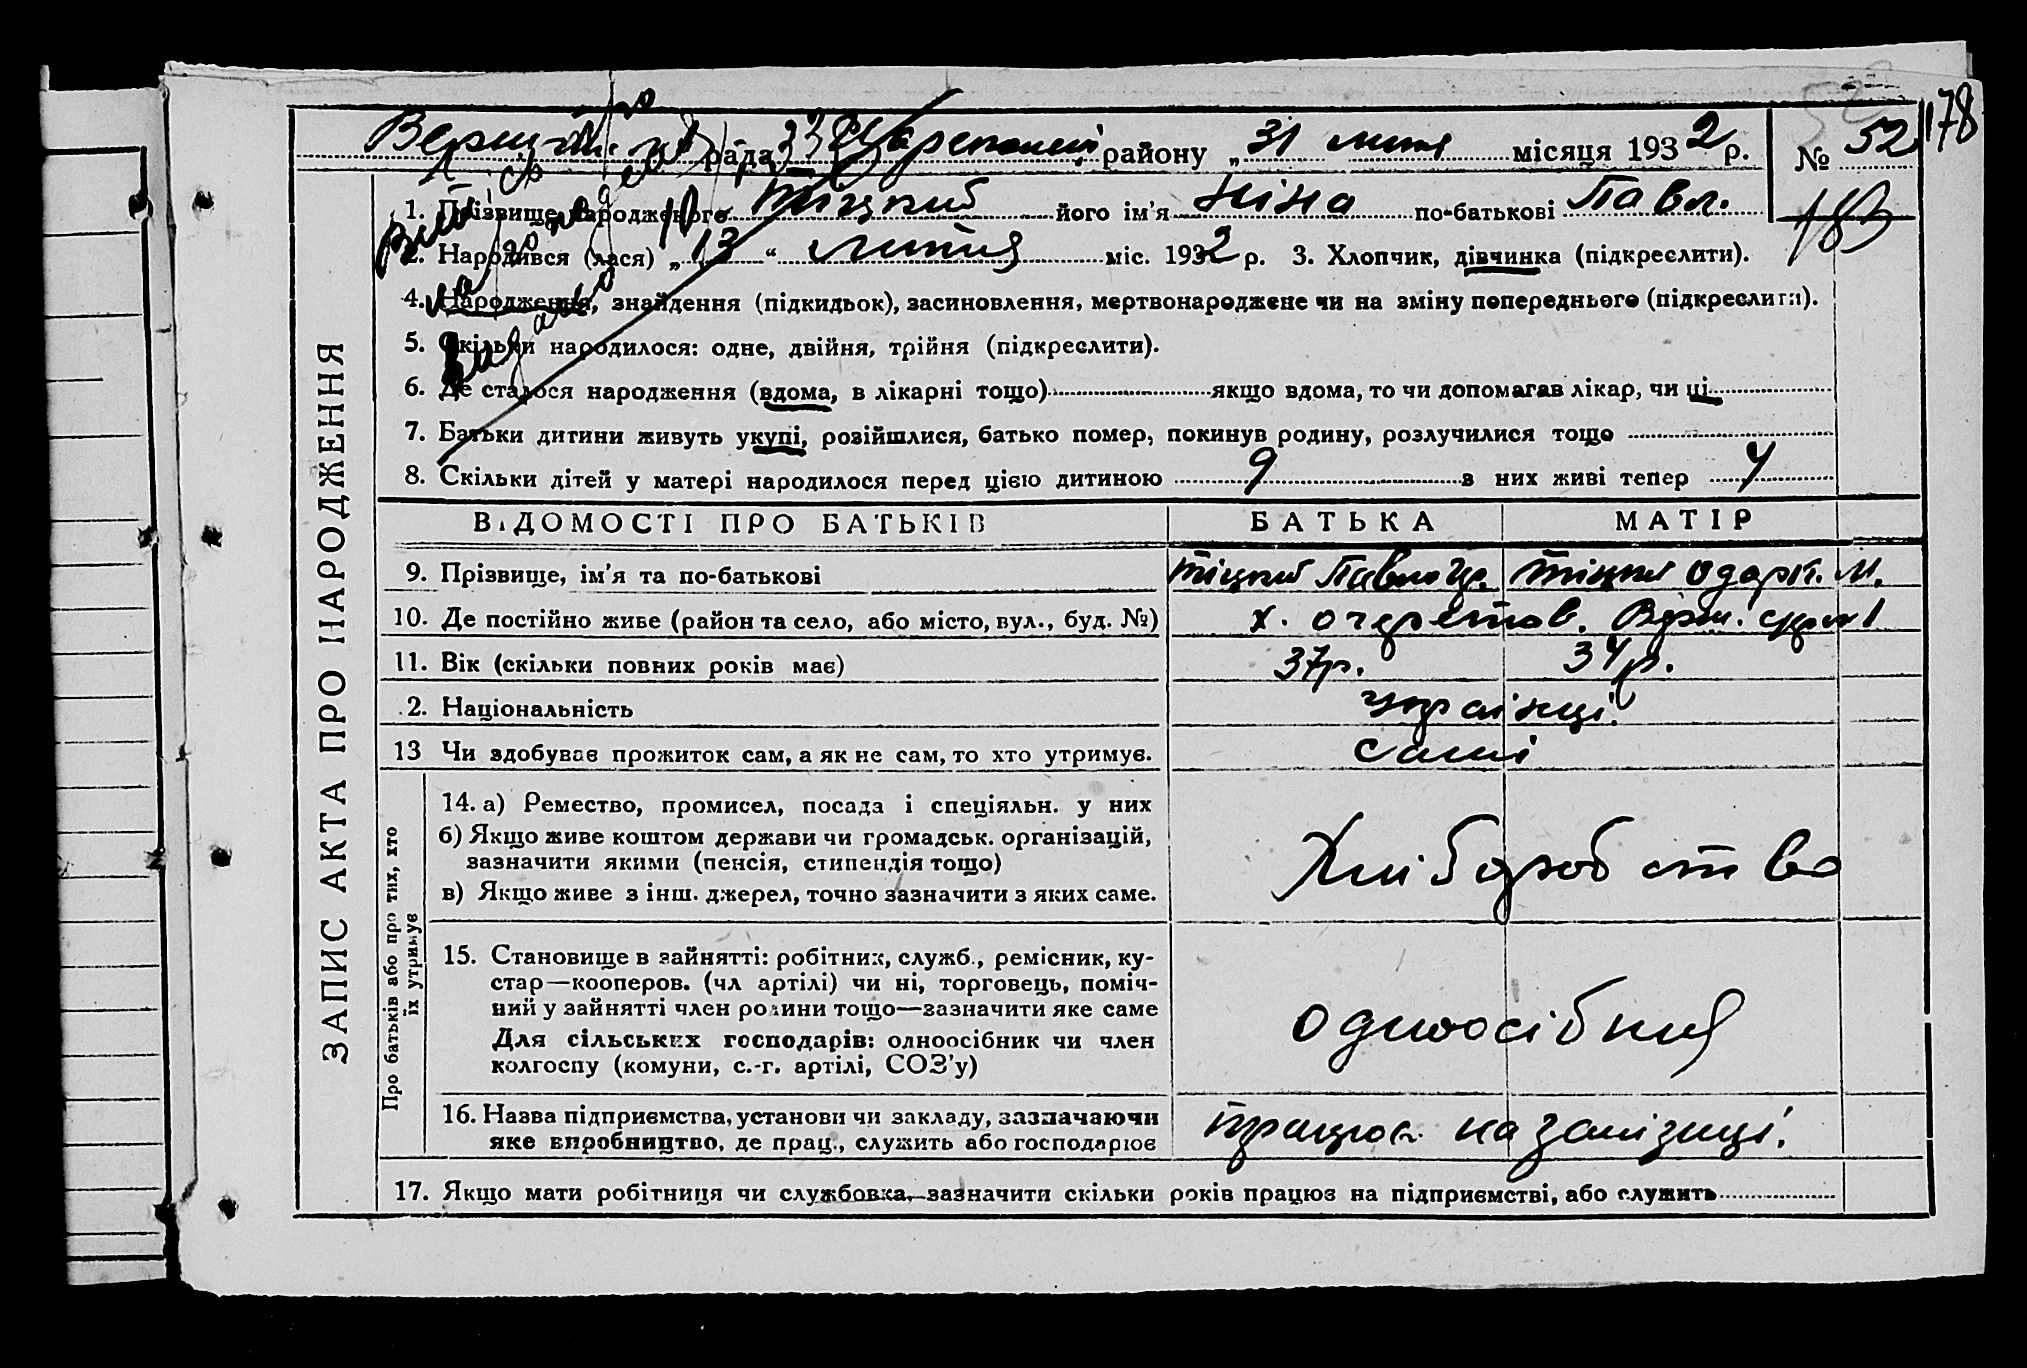 52
178
рада району „31 липня місяця 1932р. № 52
183
1. Прізвище народженого Тіцький його ім'я Ніна по-батькові Павл.
2. Народився (лася) „13“ липня міс. 1932 р. 3. Хлопчик, дівчинка (підкреслити).
4. Народження, знайдення (підкидьок), засиновлення, мертвонароджене чи на зміну попереднього (підкреслити).
5. Скільки народилося: одне, двійня, трійня (підкреслити).
6. Де сталося народження (вдома, в лікарні тощо) якщо вдома, то чи допомагав лікар, чи ні
7. Батьки дитини живуть укупі, розійшлися, батько помер, покинув родину, розлучилися тощо
8. Скільки дітей у матері народилося перед цією дитиною 9 з них живі тепер 4
ЗАПИС АКТА ПРО НАРОДЖЕННЯ
ВІДОМОСТІ ПРО БАТЬКІВ БАТЬКА МАТІР
9. Прізвище, ім'я та по-батькові Тіцький Павло Тіцька Одарк. М.
10. Де постійно живе (район та село, або місто, вул., буд. №) х. Очеретов.
11. Вік (скільки повних років має) 37р. 34р.
2. Національність українці
13 Чи здобуває прожиток сам, а як не сам, то хто утримує. самі
Про батьків або про тих, хто
їх утримує
14. а) Ремество, промисел, посада і спеціяльн. у них
б) Якщо живе коштом держави чи громадськ. організацій,
зазначити якими (пенсія, стипендія тощо)
в) Якщо живе з інш. джерел, точно зазначити з яких саме.
Хліборобство
15. Становище в зайнятті: робітник, служб., ремісник, ку-
стар—кооперов. (чл артілі) чи ні, торговець, поміч-
ний у зайнятті член родини тощо—зазначити яке саме
Для сільських господарів: одноосібник чи член
колгоспу (комуни, с.-г. артілі, СОЗ'у)
одноосібник
16. Назва підприємства, установи чи закладу, зазначаючи
яке виробництво, де прац., служить або господарює
працює на залізниці.
17. Якщо мати робітниця чи службовка, зазначити скільки років працює на підприємстві, або служить